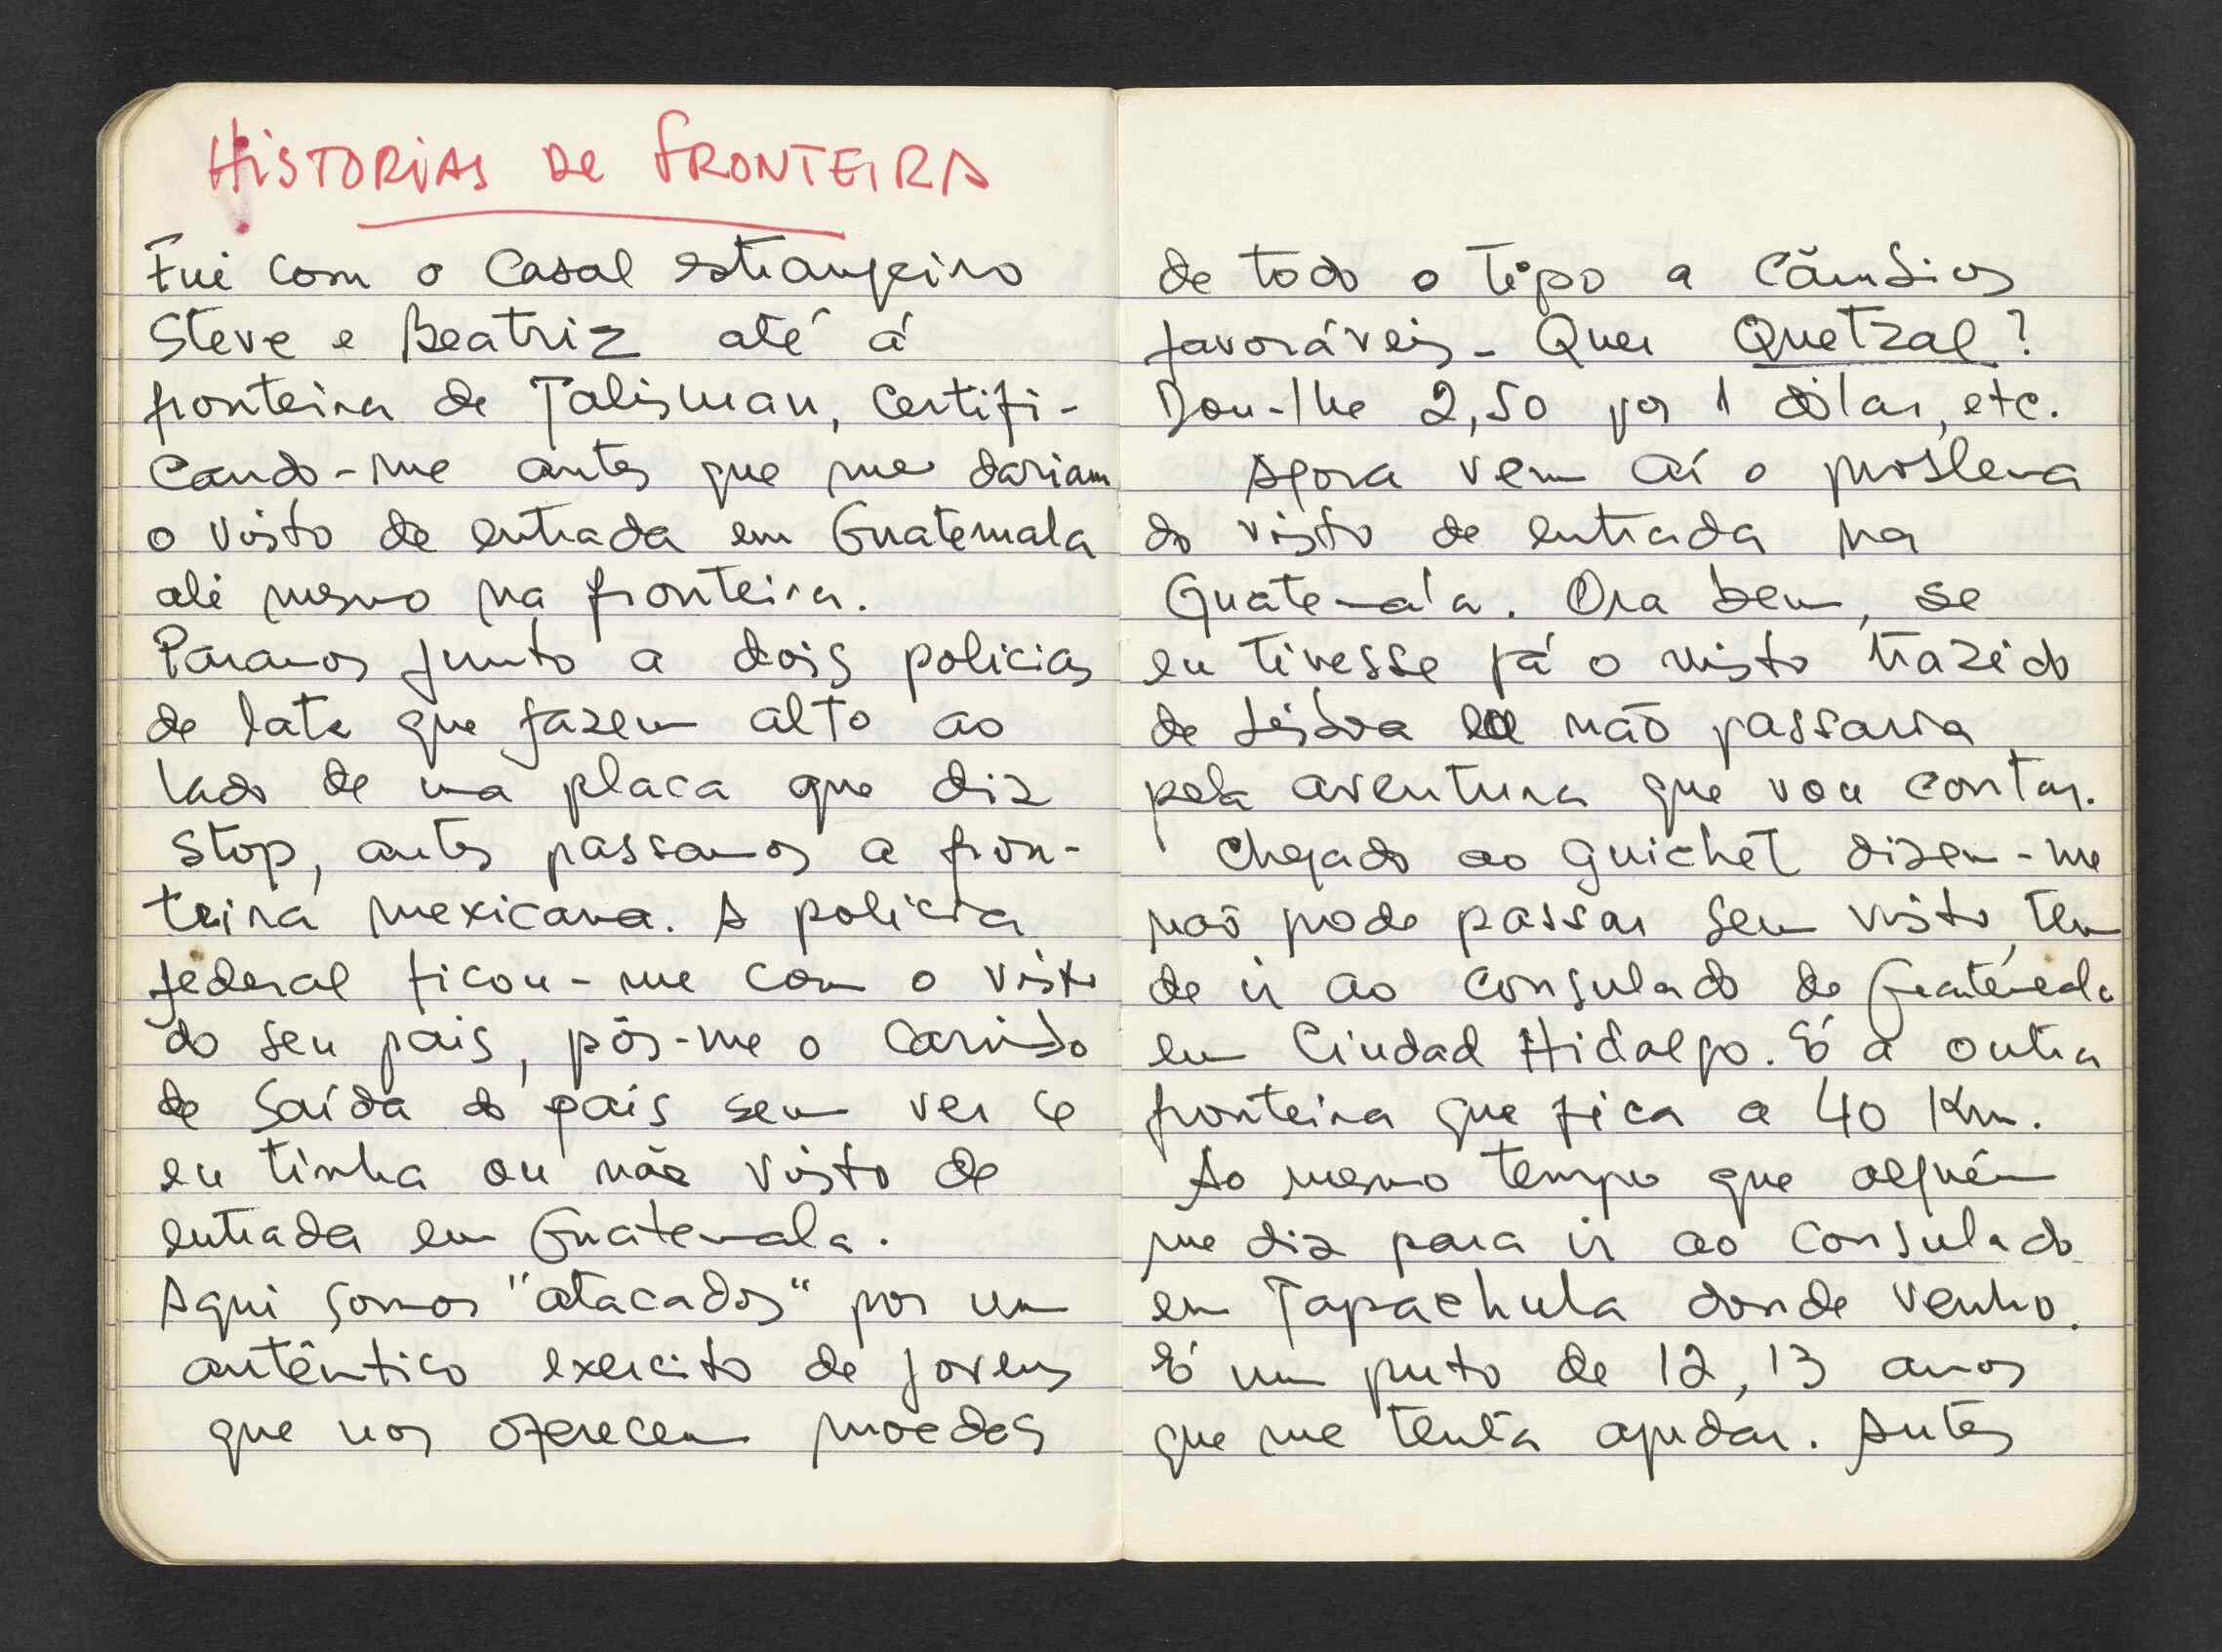 HISTORIAS DE FRONTEIRA
Fui com o casal estrangeiro
Steve e Beatriz até á
fronteira de Talisman, certifi-
cando-me antes que me dariam
o visto de entrada em Guatemala
ali mesmo na fronteira.
Paramos junto a dois policias
de lata que fazem alto ao
lado de uma placa que diz
stop, antes passamos a fron-
teira mexicana. A policia
federal ficou-me com o visto
do seu pais, pôs-me o carimbo
de saída do pais sem ver se
eu tinha ou não visto de
entrada em Guatemala.
Aqui somos "atacados" por um
autêntico exercito de jovens
que nos oferecem moedas
de todo o tipo a câmbios
favoráveis - Quer Quetzal?
Dou-lhe 2,50 por 1 dólar, etc.
Agora vem aí o problema
do visto de entrada na
Guatemala. Ora bem, se
eu tivesse já o visto trazido
de Lisboa não passaria
pela aventura que vou contar.
Chegado ao guichet dizem-me
não pode passar sem visto, tem
de ir ao consulado de Guatemala
em Ciudad Hidalgo. É a outra
fronteira que fica a 40 Km.
Ao mesmo tempo que alguém
me diz para ir ao consulado
em Tapachula donde venho.
É um puto de 12, 13 anos
que me tenta ajudar. Antes